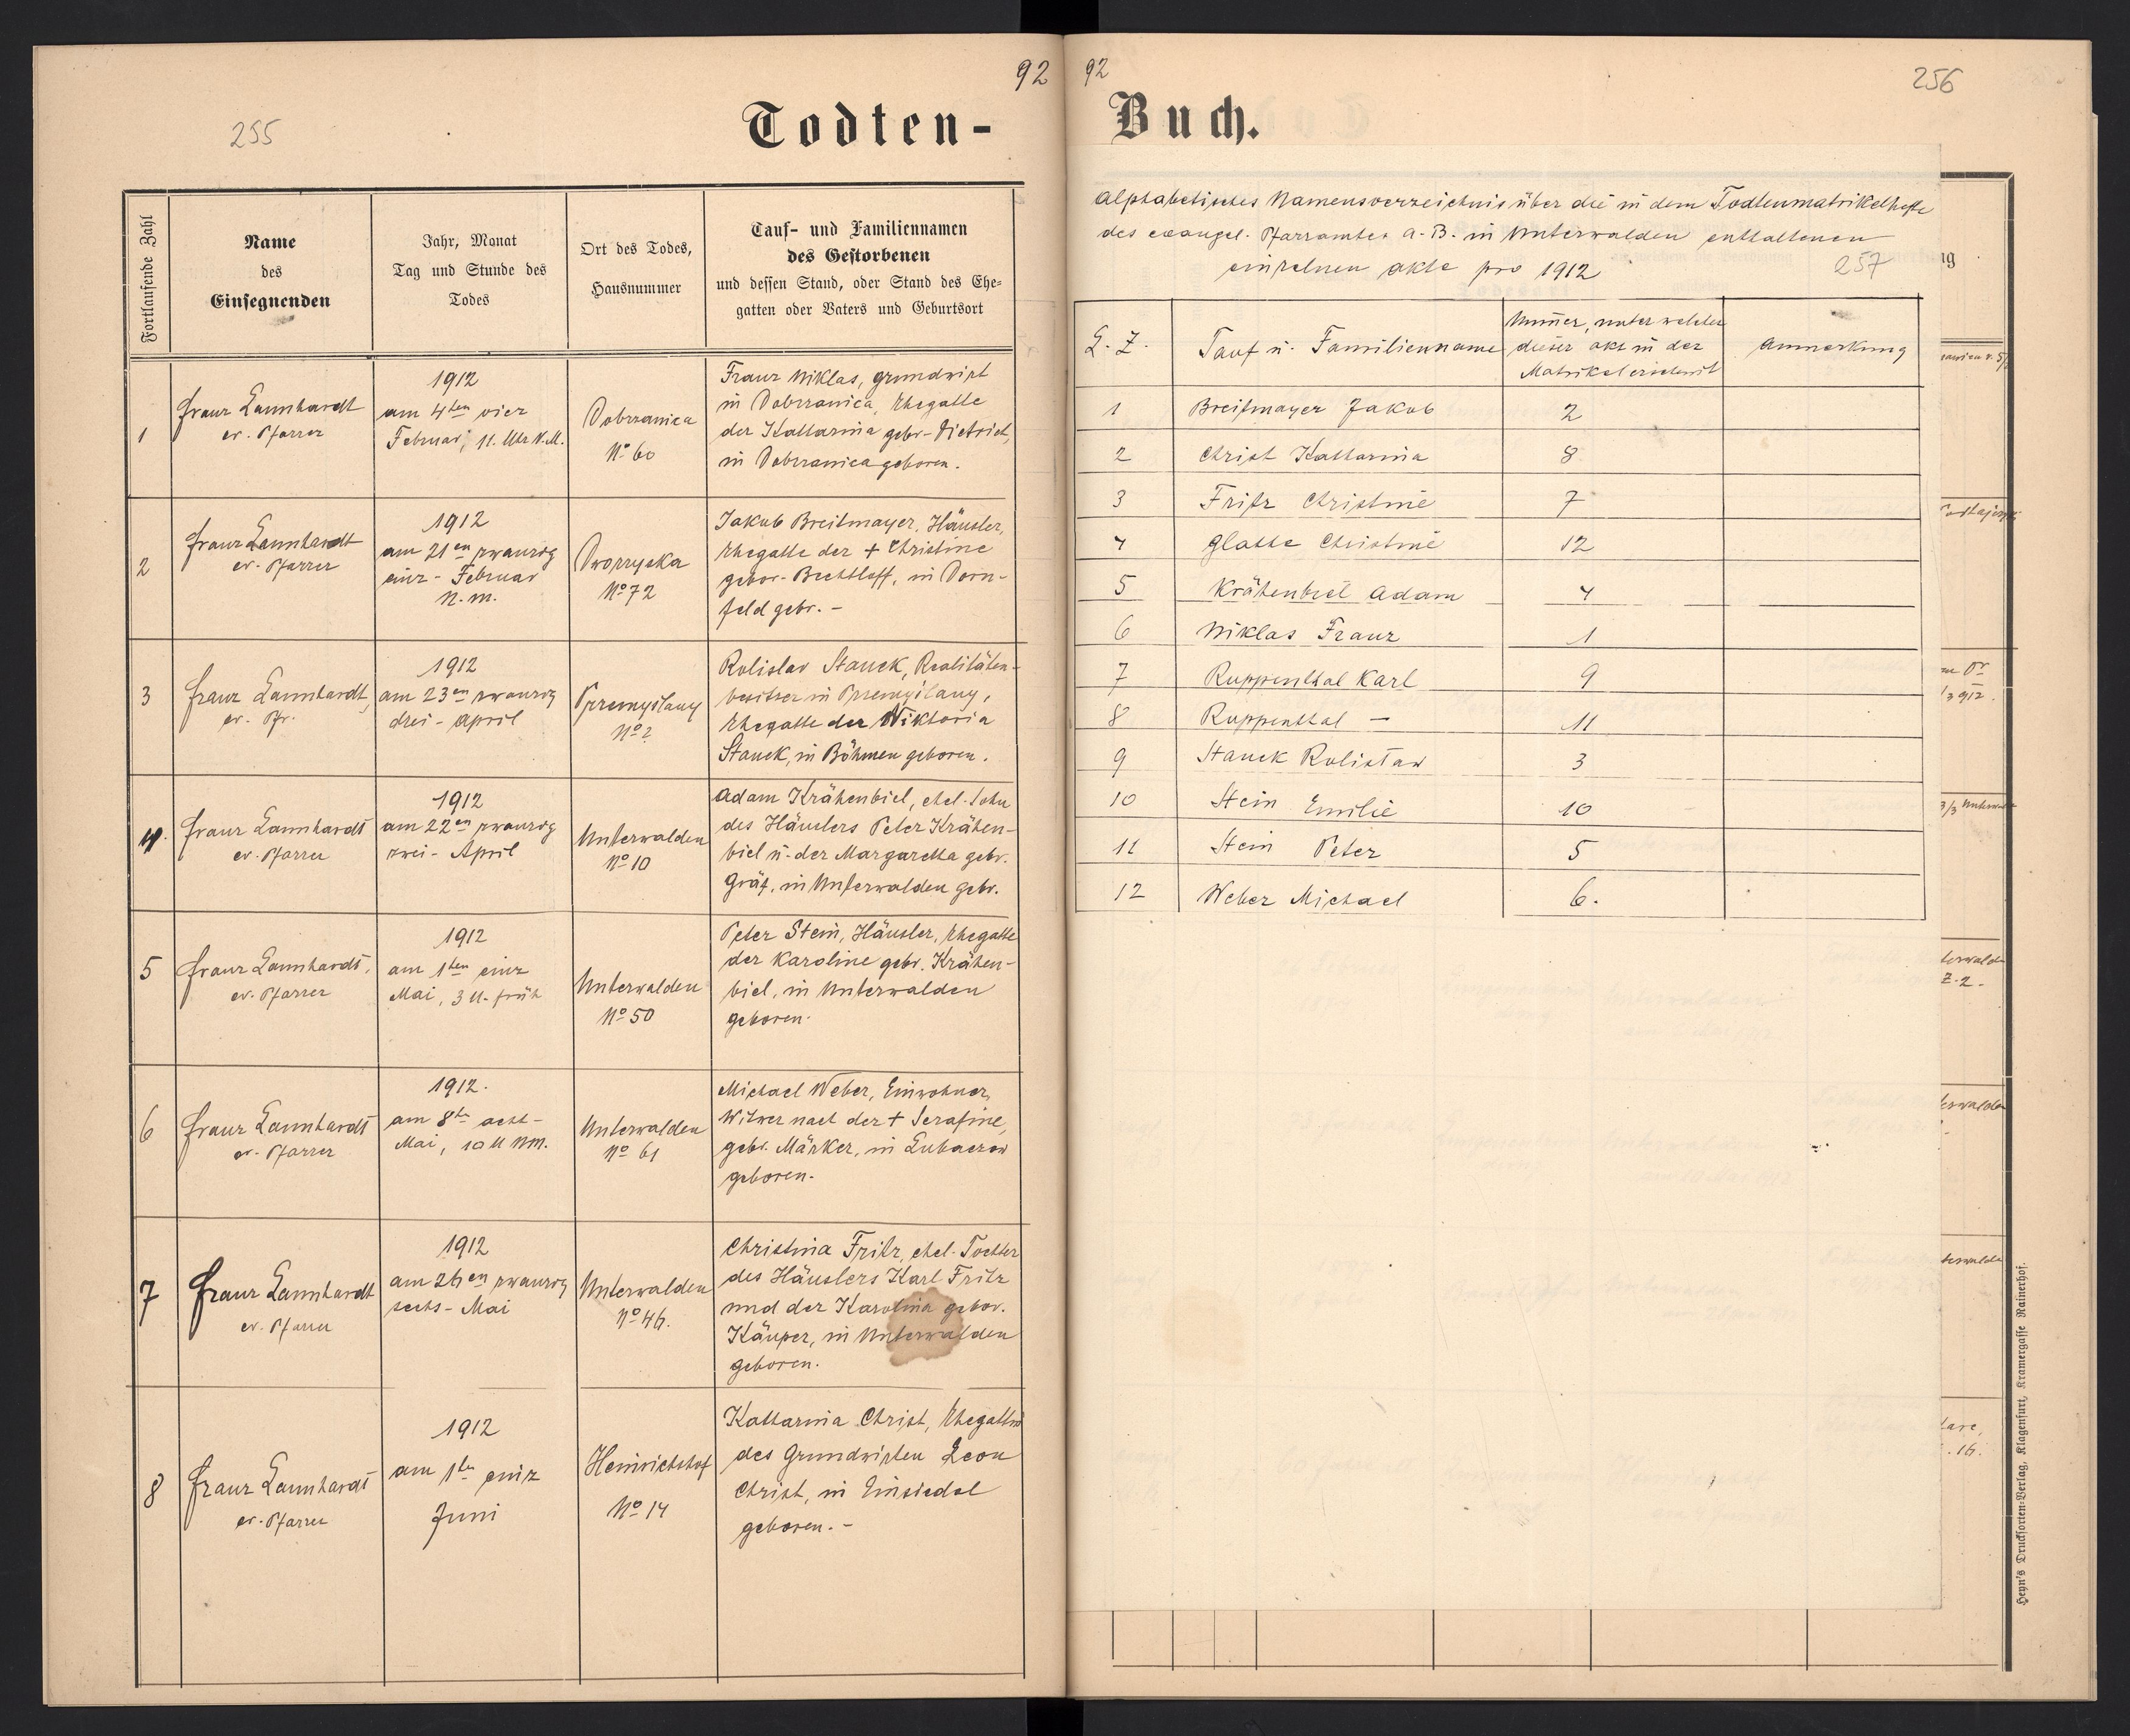 92
255
Todten-
Fortlaufende Zahl
Name
des
Einsegnenden
Jahr, Monat
Tag und Stunde des
Todes
Ort des Todes,
Hausnummer
Tauf- und Familiennamen
des Gestorbenen
und dessen Stand, oder Stand des Ehe-
gatten oder Vaters und Geburtsort
1
Franz Lannhardt
ev. Pfarrer
1912
am 4ten vier
Februar, 11. Uhr N.M.
Dobrzanica
No 60
Franz Niklas, Grundwirt
in Dobrzanica, Ehegatte
der Katharina gebr. Dietrich,
in Dobrzanica geboren.
2
Franz Lannhardt
ev. Pfarrer
1912
am 21en zwanzig
einz - Februar
N. M.
Dworzyska
No 72
Jakob Breitmayer, Häusler,
Ehegatte der + Christine
gebor. Bechtloff, in Dorn-
feld gebr. -
3
Franz Lannhardt,
ev. Pfr.
1912
am 23en zwanzig
drei - April
Przemyslany
No ?
Rolislav Stanek, Realitäten-
besitzer in Przemyslany,
Ehegatte der Wiktoria
Stanek, in Böhmen geboren.
4.
Franz Lannhardt
ev. Pfarrer
1912
am 22en zwanzig
zwei - April
Unterwalden
No 10
Adam Krähenbiel, ehel. Sohn
des Häuslers Peter Krähen-
biel u. der Margaretha gebr.
Gräf, in Unterwalden gebr.
5
Franz Lannhardt,
ev. Pfarrer
1912
am 1ten einz
Mai, 3 U. früh
Unterwalden
No 50
Peter Stein, Häusler, Ehegatte
der Karoline gebr. Krähen-
biel, in Unterwalden
geboren.
6
Franz Lannhardt
ev. Pfarrer
1912.
am 8te acht -
Mai, 10 U NM.
Unterwalden
No 61
Michael Weber, Einwohner,
Witwer nach der + Serafine,
gebr. Märker, in Lubaczow
geboren.
7
Franz Lannhardt
ev. Pfarrer
1912
am 26en zwanzig
sechs - Mai
Unterwalden
No 46.
Christina Fritz, ehel. Tochter
des Häuslers Karl Fritz
und der Karolina gebor.
Käuper, in Unterwalden
geboren.
8
Franz Lannhardt
ev. Pfarrer
1912
am 1te einz
Juni
Heinrichshof
No 14
Katharina Christ, Ehegattin
des Grundwirten Leon
Christ, in Einsiedel
geboren. -
92
256
Buch.
Alphabetisches Namensverzeichnis über die in dem Todtenmatrikelhefte
des evangel. Pfarramtes A. B. in Unterwalden enthaltenen
einzelnen Akte pro 1912
257
L. Z.
Tauf u. Familienname
Numer, unter welcher
dieser Akt in der
Matrikel erscheint
Anmerkung
1 Breitmayer Jakob 2
2 Christ Katharina 8
3 Fritz Christine 7
4 Glathe Christine 12
5 Krähenbiel Adam 4
6 Niklas Franz 1
7 Ruppenthal Karl 9
8 Ruppenthal - 11
9 Stanek Rolisław 3
10 Stein Emilie 10
11 Stein Peter 5
12 Weber Michael 6.
Heyn's Drucksorten-Verlag, Klagenfurt, Kramergasse Rainerhof.